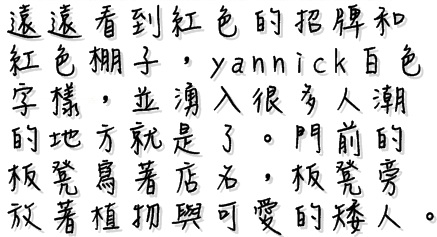 遠遠看到紅色的招牌和
紅色棚子，yannick白色
字樣，並湧入很多人潮
的地方就是了。門前的
板凳寫著店名，板凳旁
放著植物與可愛的矮人。